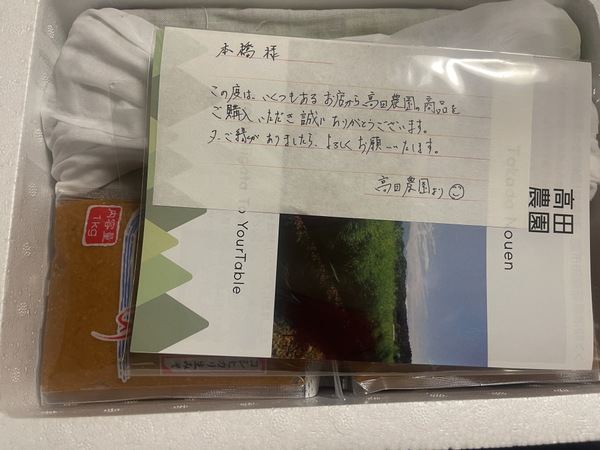 本橋 様
この度は、いくつもあるお店から高田農園の商品を
ご購入いただき誠にありがとうございます。
又、ご縁がありましたら、よろしくお願いいたします。
高田農園より
高田
農園
Takada Nouen
To YourTable
内容量
1kg
コシヒカリ生みそ